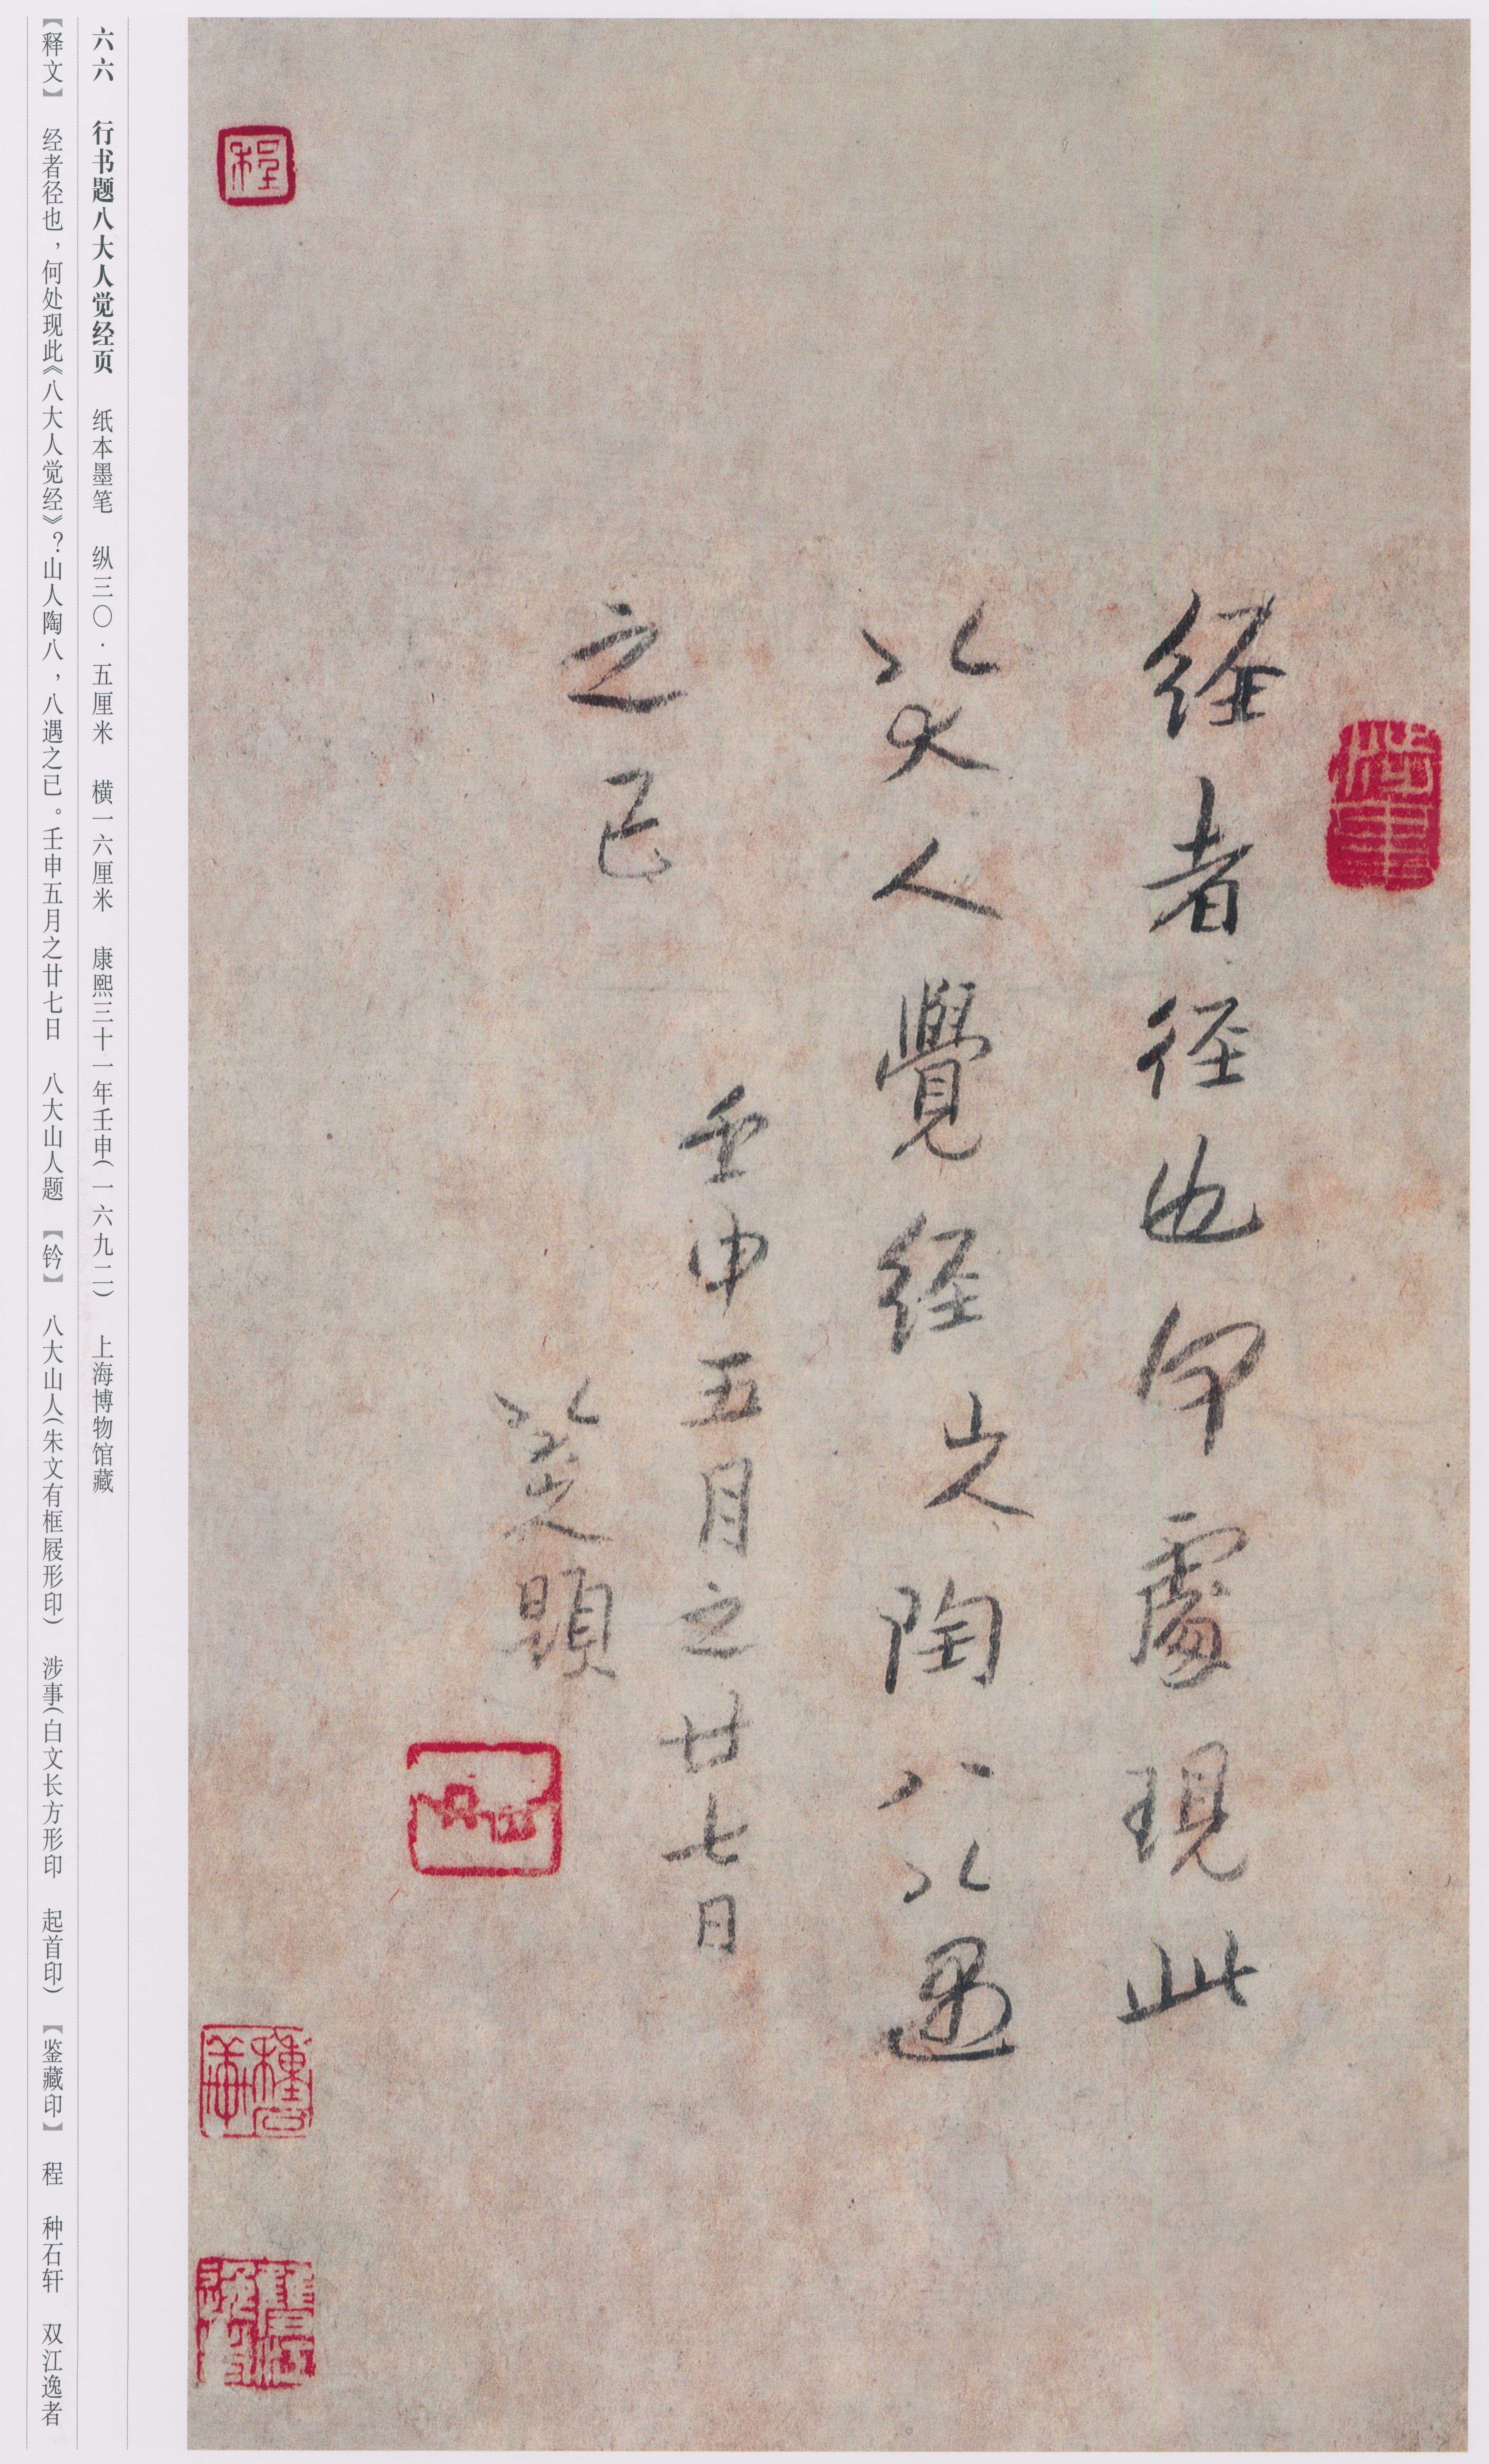 经者径也何處現此
八大人覺经山人陶八八遇
之已
壬申五月之廿七日
八大山人題
程
六六 行书题八大人觉经页 纸本墨笔 纵三〇·五厘米 横一六厘米 康熙三十一年壬申(一六九二) 上海博物馆藏
【释文】 经者径也，何处现此《八大人觉经》？山人陶八，八遇之已。壬申五月之廿七日 八大山人题 【钤】 八大山人(朱文有框屐形印) 涉事(白文长方形印 起首印) 【鉴藏印】 程 种石轩 双江逸者